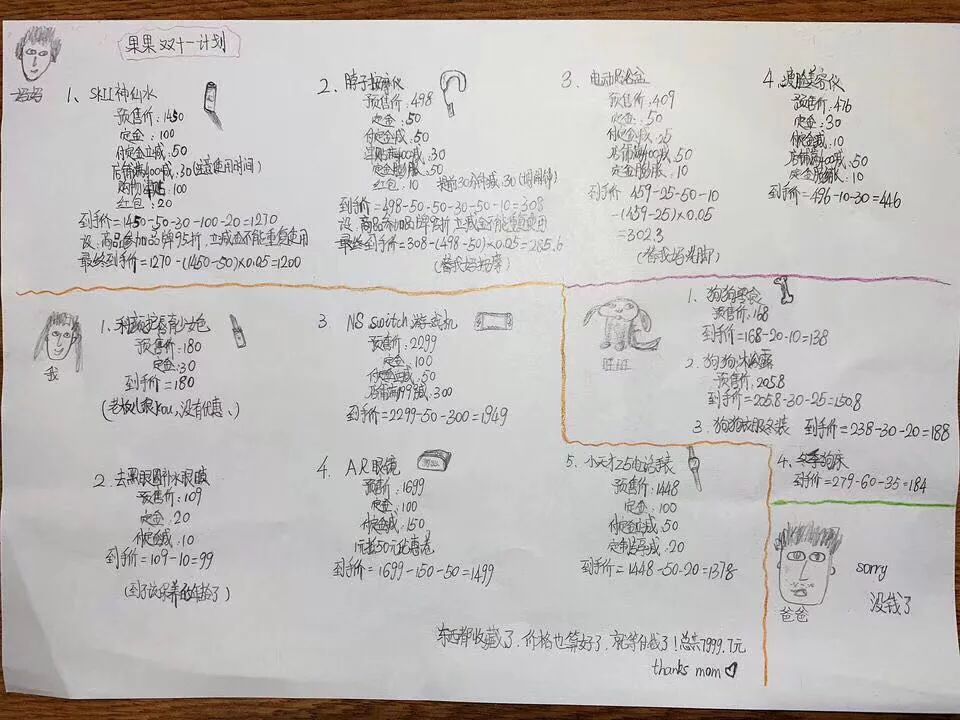 果果双十一计划
妈妈
1、SKII神仙水
预售价：1450
定金：100
付定立减：50
店铺满400减：30(注意使用时间)
购物津贴：100
红包：20
到手价=1450-50-30-100-20=1270
设：商品参加品牌95折，立减金不能重复使用
最终到手价=1270-(1450-50)×0.05=1200
2、脖子按摩仪
预售价：498
定金：50
付定金减：50
满400减：30
定金膨胀：50
红包：10
前30分钟减：30
到手价=498-50-50-30-50-10=308
设：商品参加品牌95折，立减金不能重复使用
最终到手价=308-(498-50)×0.05=285.6
(替我妈按摩)
3、电动
预售价：409
定金：50
付定金减：25
店铺满400减：50
定金膨胀：10
到手价 459-25-50-10
-(459-25)×0.05
=302.3
(替我妈洗脚)
4、瘦脸美容仪
预售价：476
定金：30
付定金减：10
店铺满400减：50
定金膨胀：10
到手价=496-10-30=446
我
1、
预售价：180
定金：30
到手价=180
(老板儿狠you，没有优惠、)
2、去黑眼圈补水眼膜
预售价：109
定金：20
付定金减：10
到手价=109-10=99
(到了该保养的年龄了)
3、NS switch游戏机
预售价：2299
定金：100
付定金立减：50
店铺满1999减：300
到手价=2299-50-300=1949
4、AR眼镜
预售价：1699
定金：100
付定金减：150
1元抢50元优惠卷
到手价=1699-150-50=1499
5、小天才Z5电话手表
预售价：1448
定金：100
付定金立减：50
减：20
到手价=1448-50-20=1378
旺旺
1、狗狗零食
预售价：168
到手价=168-20-10=138
2、狗狗沐浴露
预售价：205.8
到手价=205.8-30-25=150.8
3、狗狗衣服冬装 到手价=238-30-20=188
4、冬季狗床
到手价=279-60-35=184
爸爸
sorry
没钱了
东西都收藏了，价格也算好了，就等付钱了！总共7999.7元
thanks mom